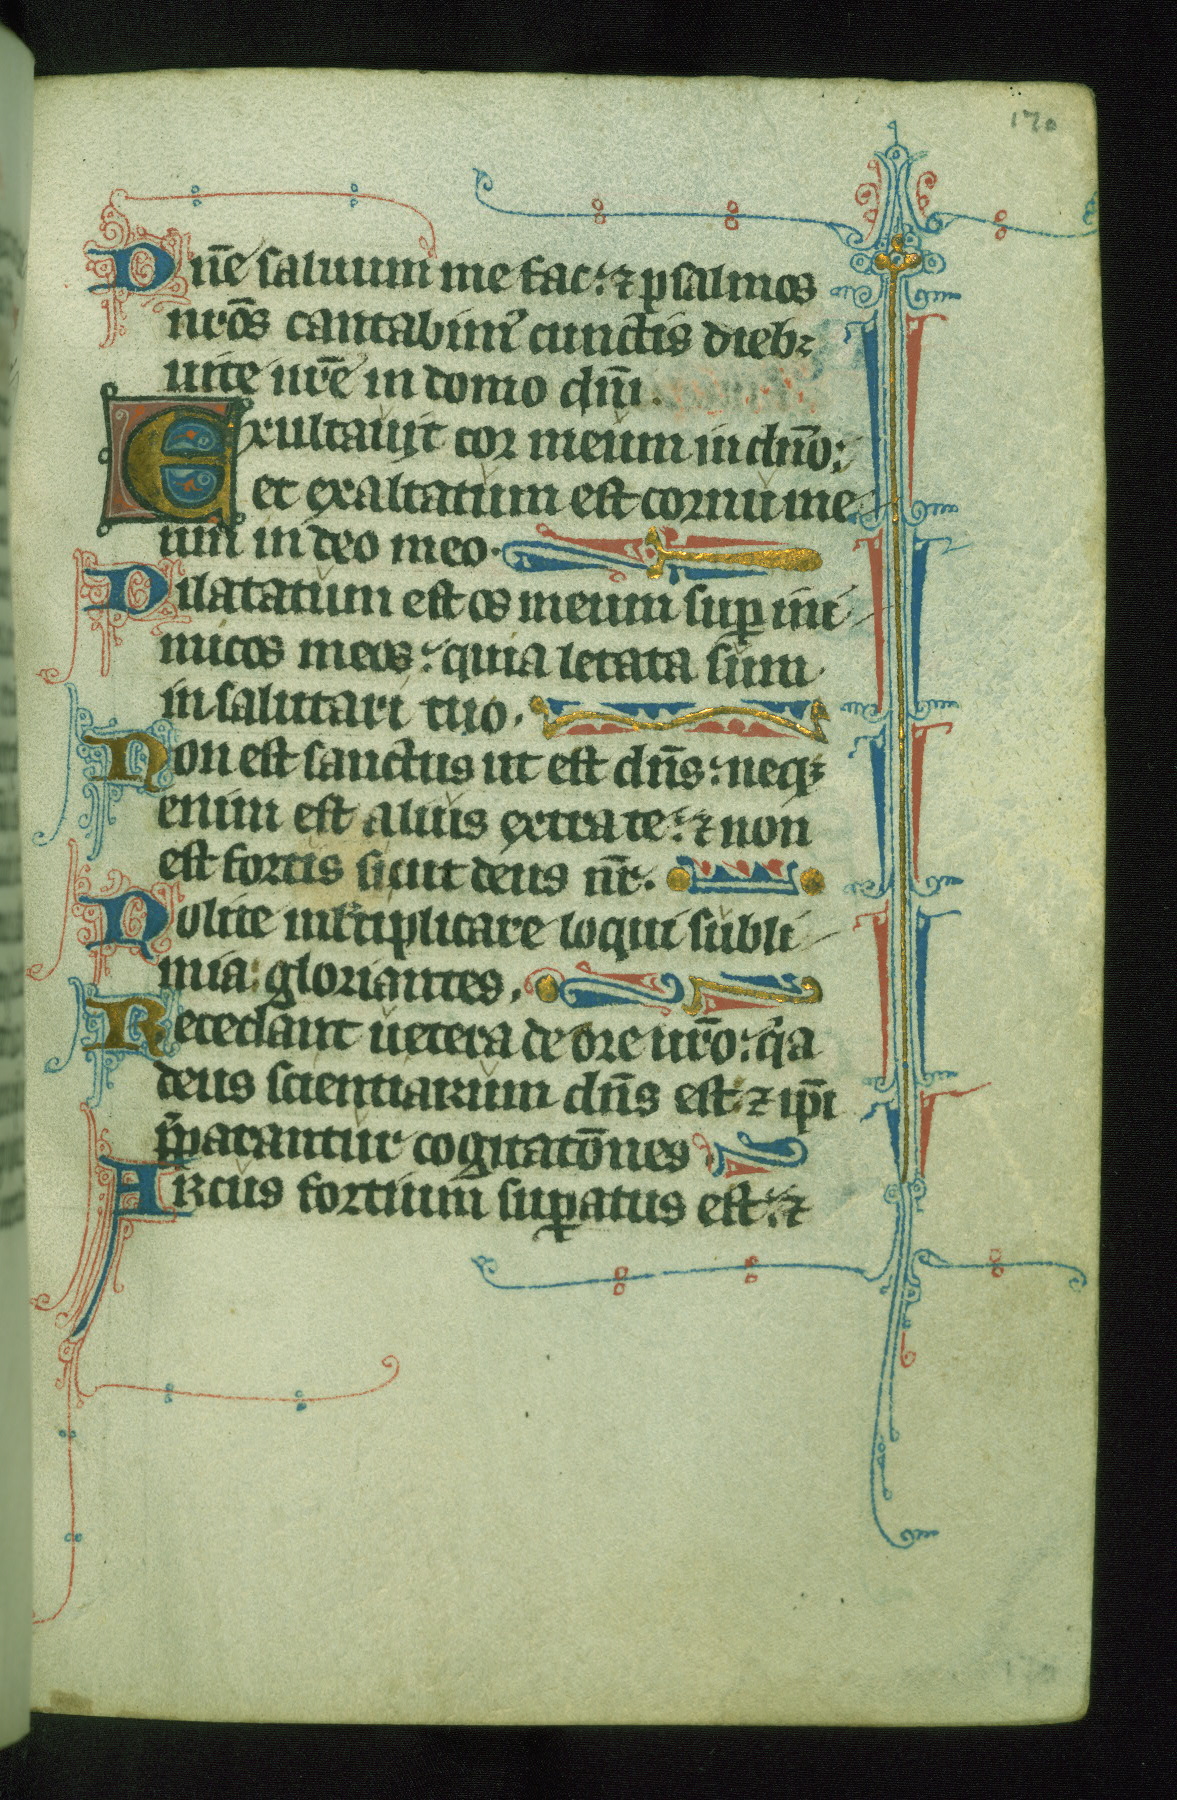 170
Dn̄e saluum me fac: ⁊ psalmos
nr̄os cantabimꝰ cunctis diebꝫ
uite nr̄e in domo dn̄i.
Exultauit cor meum in dn̄o:
et exaltatum est cornu me
um in deo meo.
Dilatatum est os meum suꝑ ini
micos meos: quia letata sum
in salutari tuo.
Non est sanctus ut est dn̄s: neqꝫ
enim est alius extra te: ⁊ non
est fortis sicut deus nr̄.
Nolite ml̄tiplicare loqui subli
mia: gloriantes.
Recedant uetera de ore ur̄o: qͥa
deus scientiarum dn̄s est ⁊ ip̄i
p̄parantur cogitatōnes
Arcus fortium suꝑatus est: ⁊